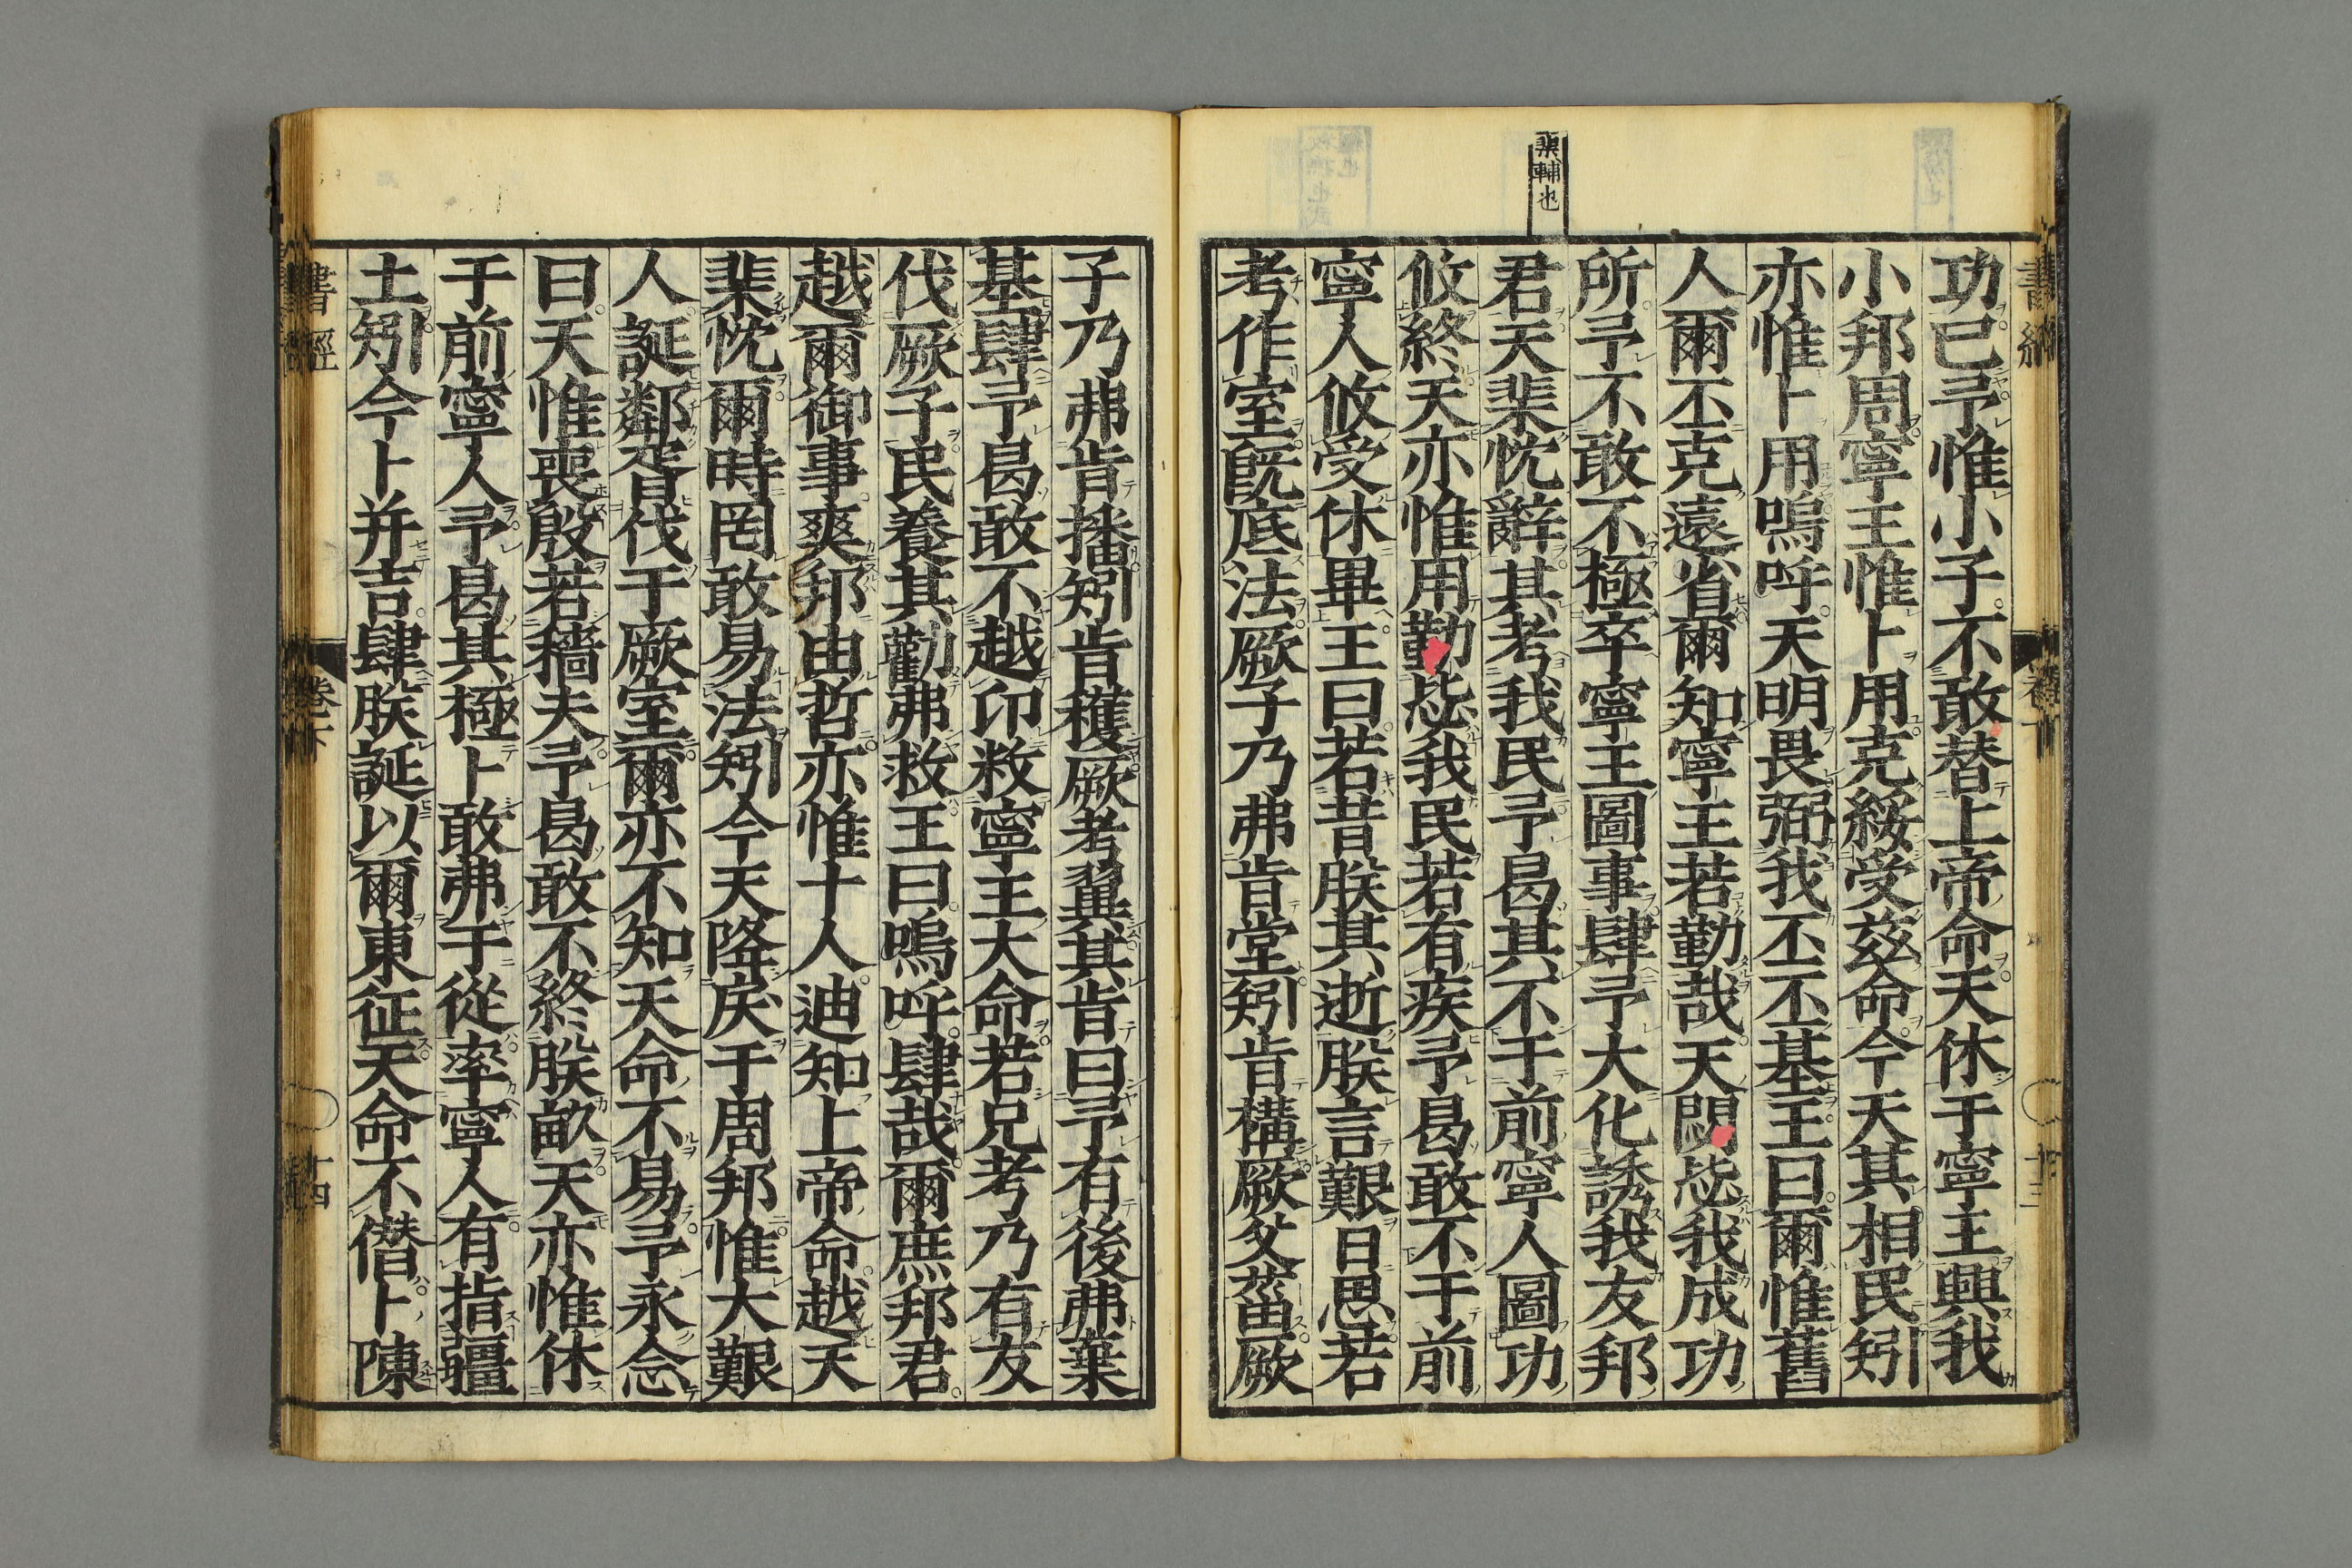 棐輔也
功已予惟小子不敢替上帝命天休于寧王興我
小邦周寧王惟卜用克綏受茲命今天其相民矧
亦惟卜用嗚呼天明畏弼我丕丕基王曰爾惟舊
人爾丕克遠省爾知寧王若勤哉天閟毖我成功
所予不敢不極卒寧王圖事肆予大化誘我友邦
君天棐忱辭其考我民予曷其不于前寧人圖功
攸終天亦惟用勤毖我民若有疾予曷敢不于前
寧人攸受休畢王曰若昔朕其逝朕言艱日思若
考作室旣底法厥子乃弗肯堂矧肯構厥父菑厥
子乃弗肯播矧肯穫厥考翼其肯曰予有後弗棄
基肆予曷敢不越卬敉寧王大命若兄考乃有友
伐厥子民養其勸弗救王曰嗚呼肆哉爾庶邦君
越爾御事爽邦由哲亦惟十人迪知上帝命越天
棐忱爾時罔敢易法矧今天降戾于周邦惟大艱
人誕鄰胥伐于厥室爾亦不知天命不易予永念
曰天惟喪殷若穡夫予曷敢不終朕畝天亦惟休
于前寧人予曷其極卜敢弗于從率寧人有指疆
土矧今卜并吉肆朕誕以爾東征天命不僭卜陳
書經
卷下
十四